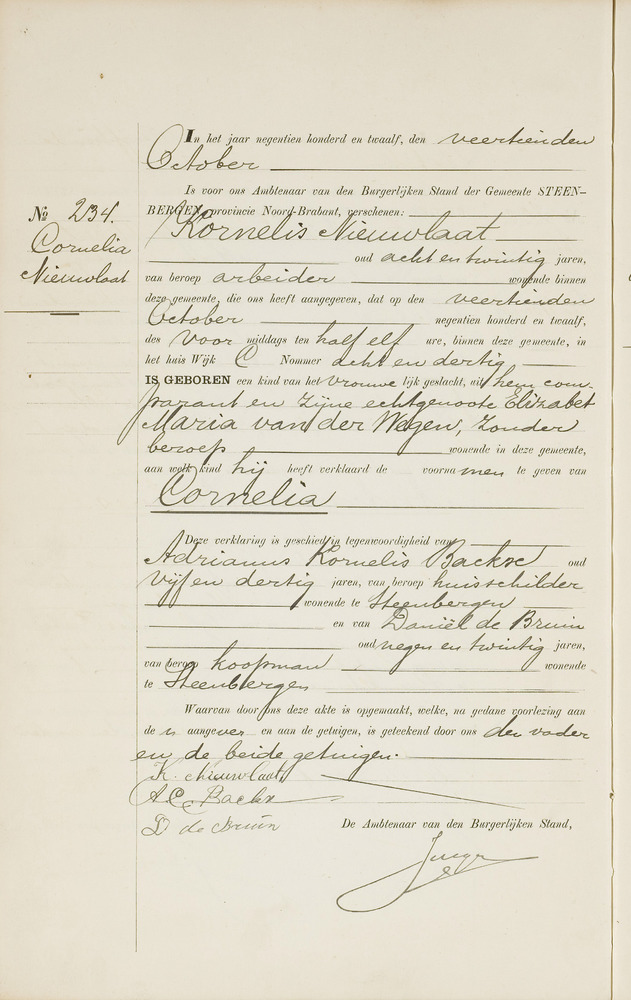 In het jaar negentien honderd en twaalf, den veertienden
October
Is voor ons Ambtenaar van den Burgerlijken Stand der Gemeente STEEN-
BERGEN, provincie Noord-Brabant, verschenen:
№ 234.
Cornelia
Nieuwlaat
Kornelis Nieuwlaat
oud acht en twintig jaren,
van beroep arbeider wonende binnen
deze gemeente, die ons heeft aangegeven, dat op den veertienden
October negentien honderd en twaalf,
des voor middags ten half elf ure, binnen deze gemeente, in
het huis Wijk C Nommer acht en dertig
IS GEBOREN een kind van het vrouwe lijk geslacht, uit hem com-
parant en zijne echtgenoote Elizabet
Maria van der Wegen, zonder
beroep wonende in deze gemeente,
aan welk kind hij heeft verklaard de voorna men te geven van
Cornelia
Deze verklaring is geschied in tegenwoordigheid van
Adrianus Kornelis Backx oud
vijf en dertig jaren, van beroep huisschilder
wonende te Steenbergen
en van Daniël de Bruin
oud negen en twintig jaren,
van beroep koopman wonende
te Steenbergen
Waarvan door ons deze akte is opgemaakt, welke, na gedane voorlezing aan
de n aangever en aan de getuigen, is geteekend door ons den vader
en de beide getuigen.
K. Nieuwlaat
A.C. Backx
D de Bruin
De Ambtenaar van den Burgerlijken Stand,